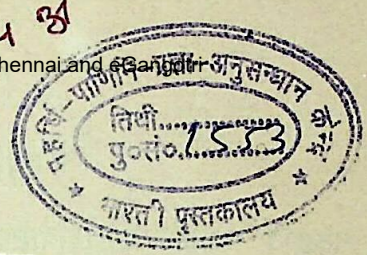 hennai and eGangotri
महर्षि-पाणिनि-
अनुसन्धान
तिथी..............
पु०सं०.1553.
* भारती पुस्तकालय *